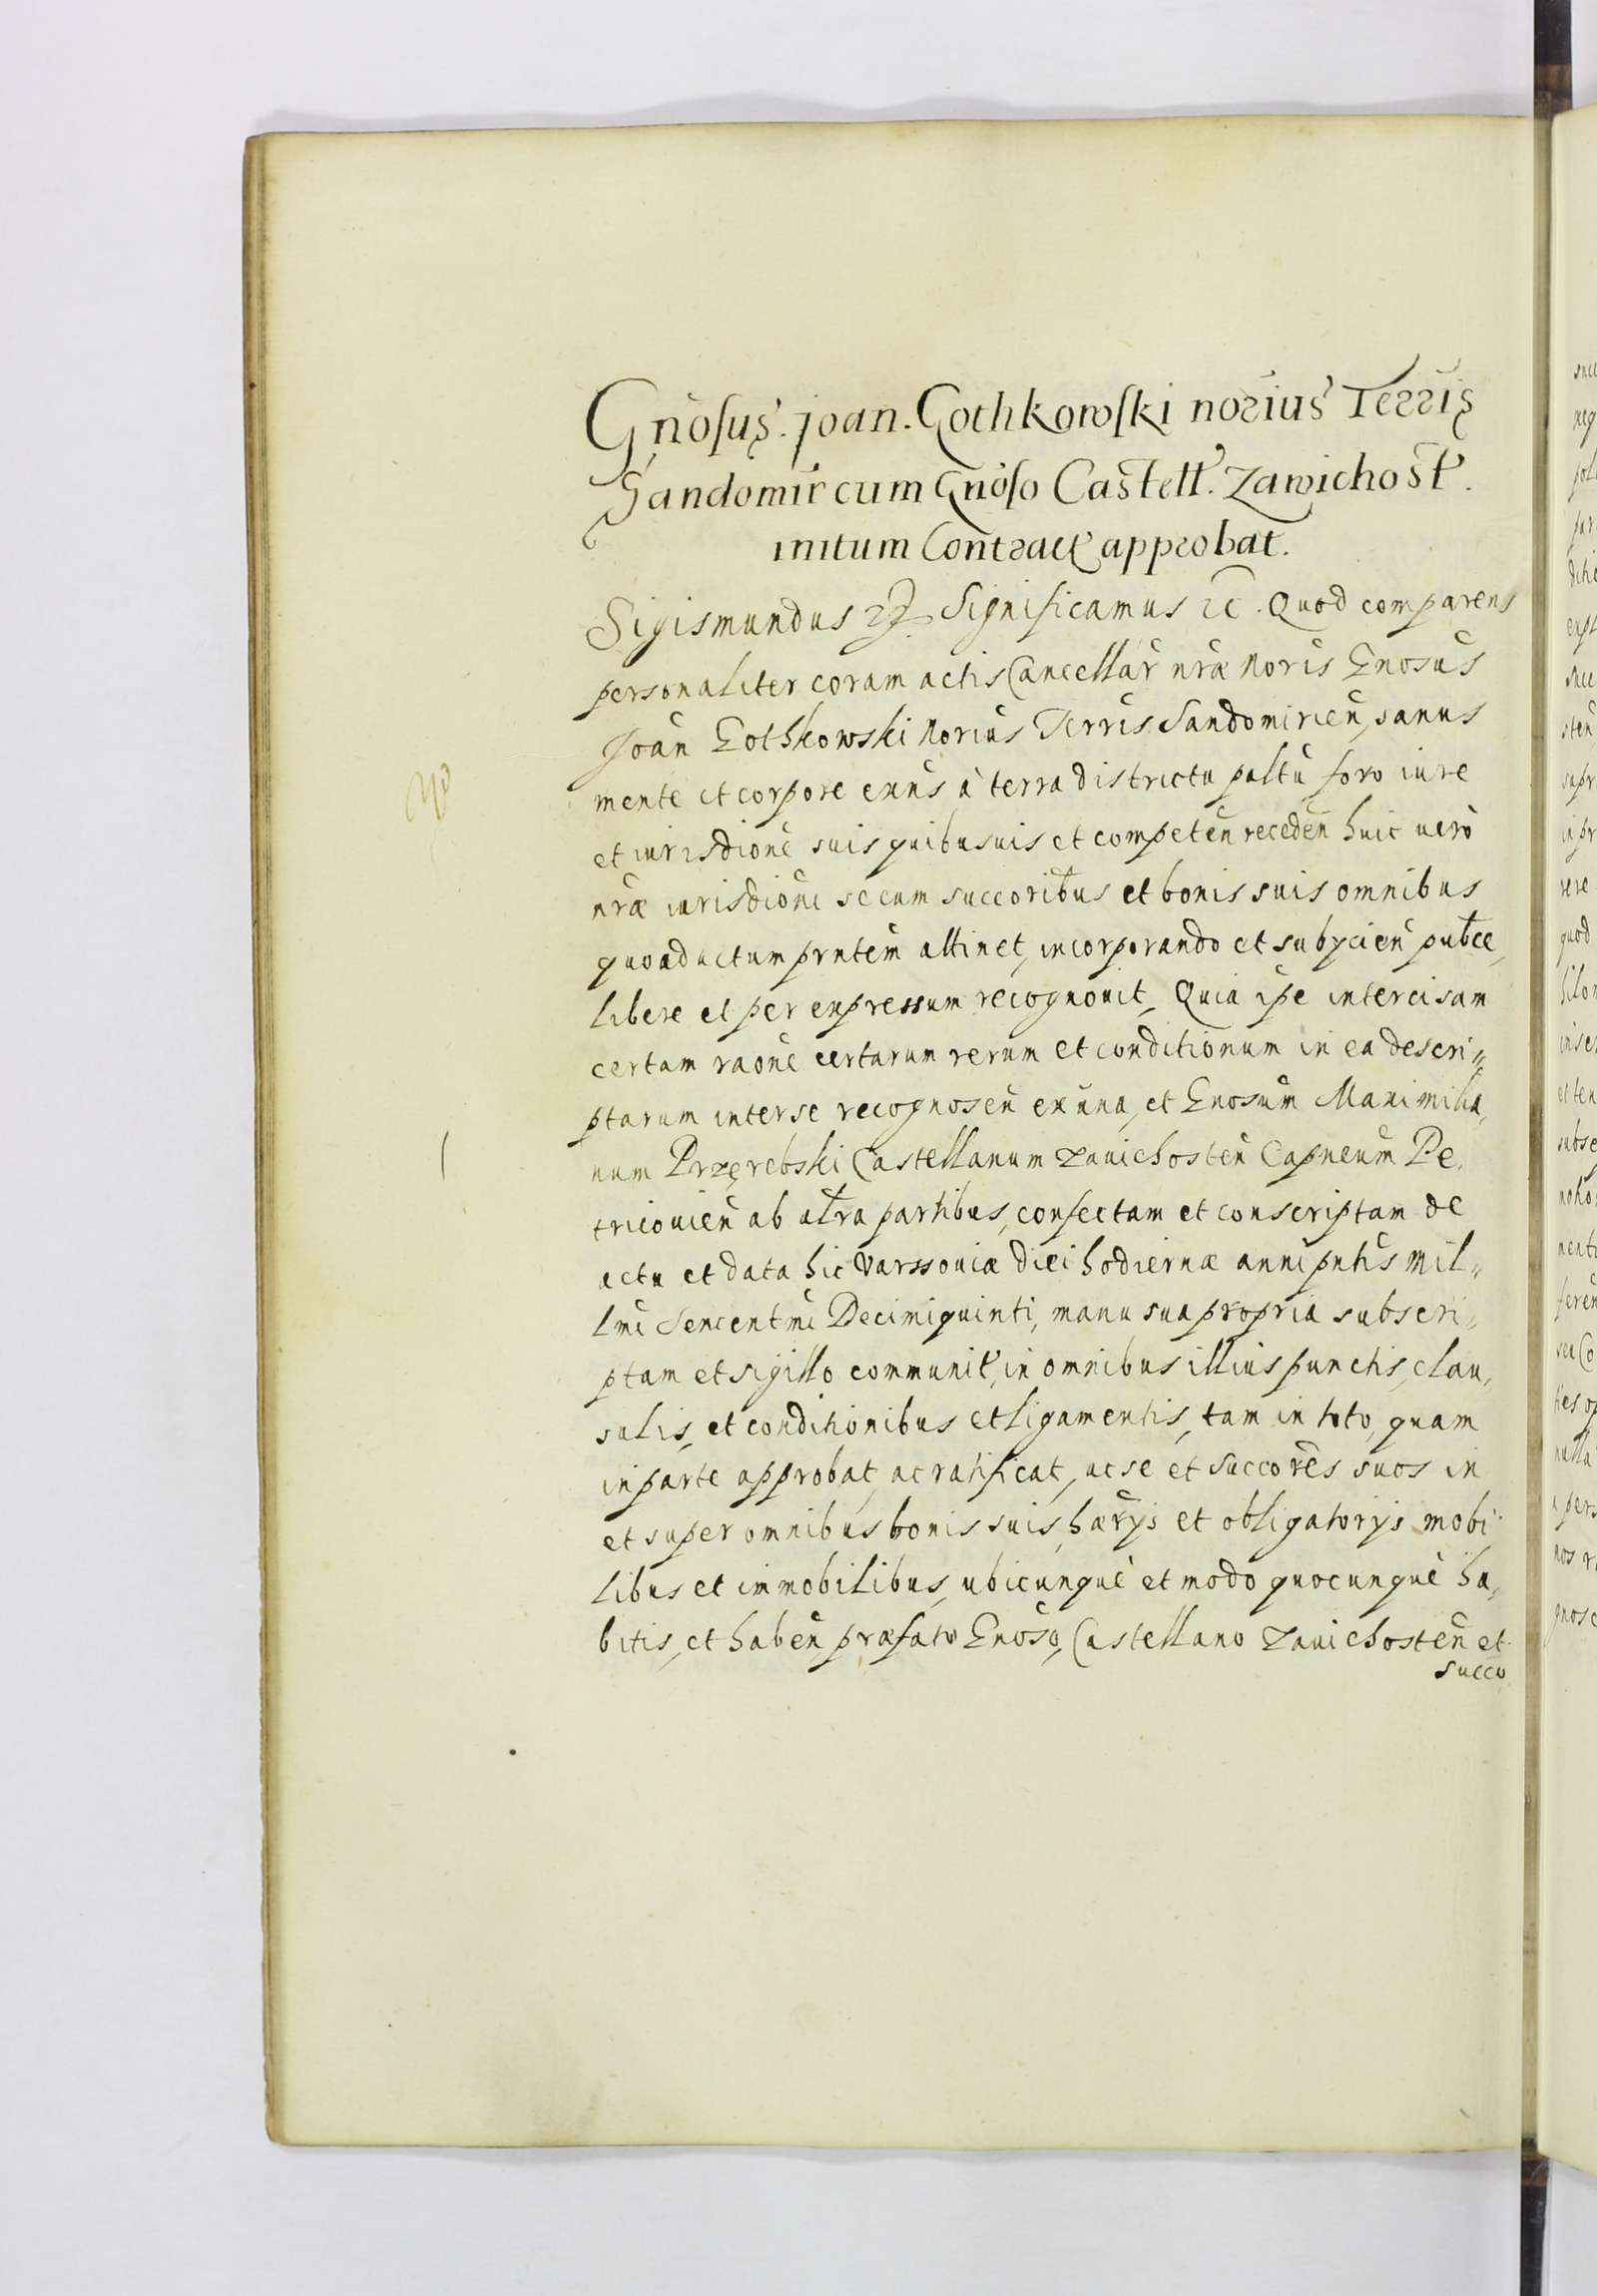 Gnosus. Joan. Gothkowski norius Terris
Sandomir cum Gnoso Castell. Zawichost.
initum Contract approbat.
Sigismundus Significamus etc. Quod comparens
personaliter coram actis Cancellar nræ Noris Gnosus
Joan Gothkowski Norius Terris Sandomirien, sanus
mente et corpore exns à terra districtu paltu foro iure
et iurisdione suis quibusuis et competen receden huic uerò
nræ iurisdioni se cum succoribus et bonis suis omnibus
quoad actum prntem attinet, incorporando et subycien publce,
libere et per expressum recognouit, Quia ipe intercisam
certam raone certarum rerum et conditionum in ea descri„
ptarum inter se recognoscen ex una, et Gnosum Maximilia„
num Przerebski Castellanum Zauichosten Capneum Pe„
tricouien ab altra partibus, confectam et conscriptam de
actu et data hic Varssouiæ diei hodiernæ anni pntis Mil„
lmi Sexcentmi Decimiquinti, manu sua propria subscri„
ptam et sigillo communit, in omnibus illius punctis, clau„
sulis, et conditionibus et ligamentis, tam in toto, quam
in parte approbat, ac ratificat, ac se et Succores suos in
et super omnibus bonis suis, hærys et obligatorys mobi„
libus et immobilibus, ubicunque et modo quocunque ha„
bitis, et haben præfato Gnoso, Castellano Zauichosten et
succo